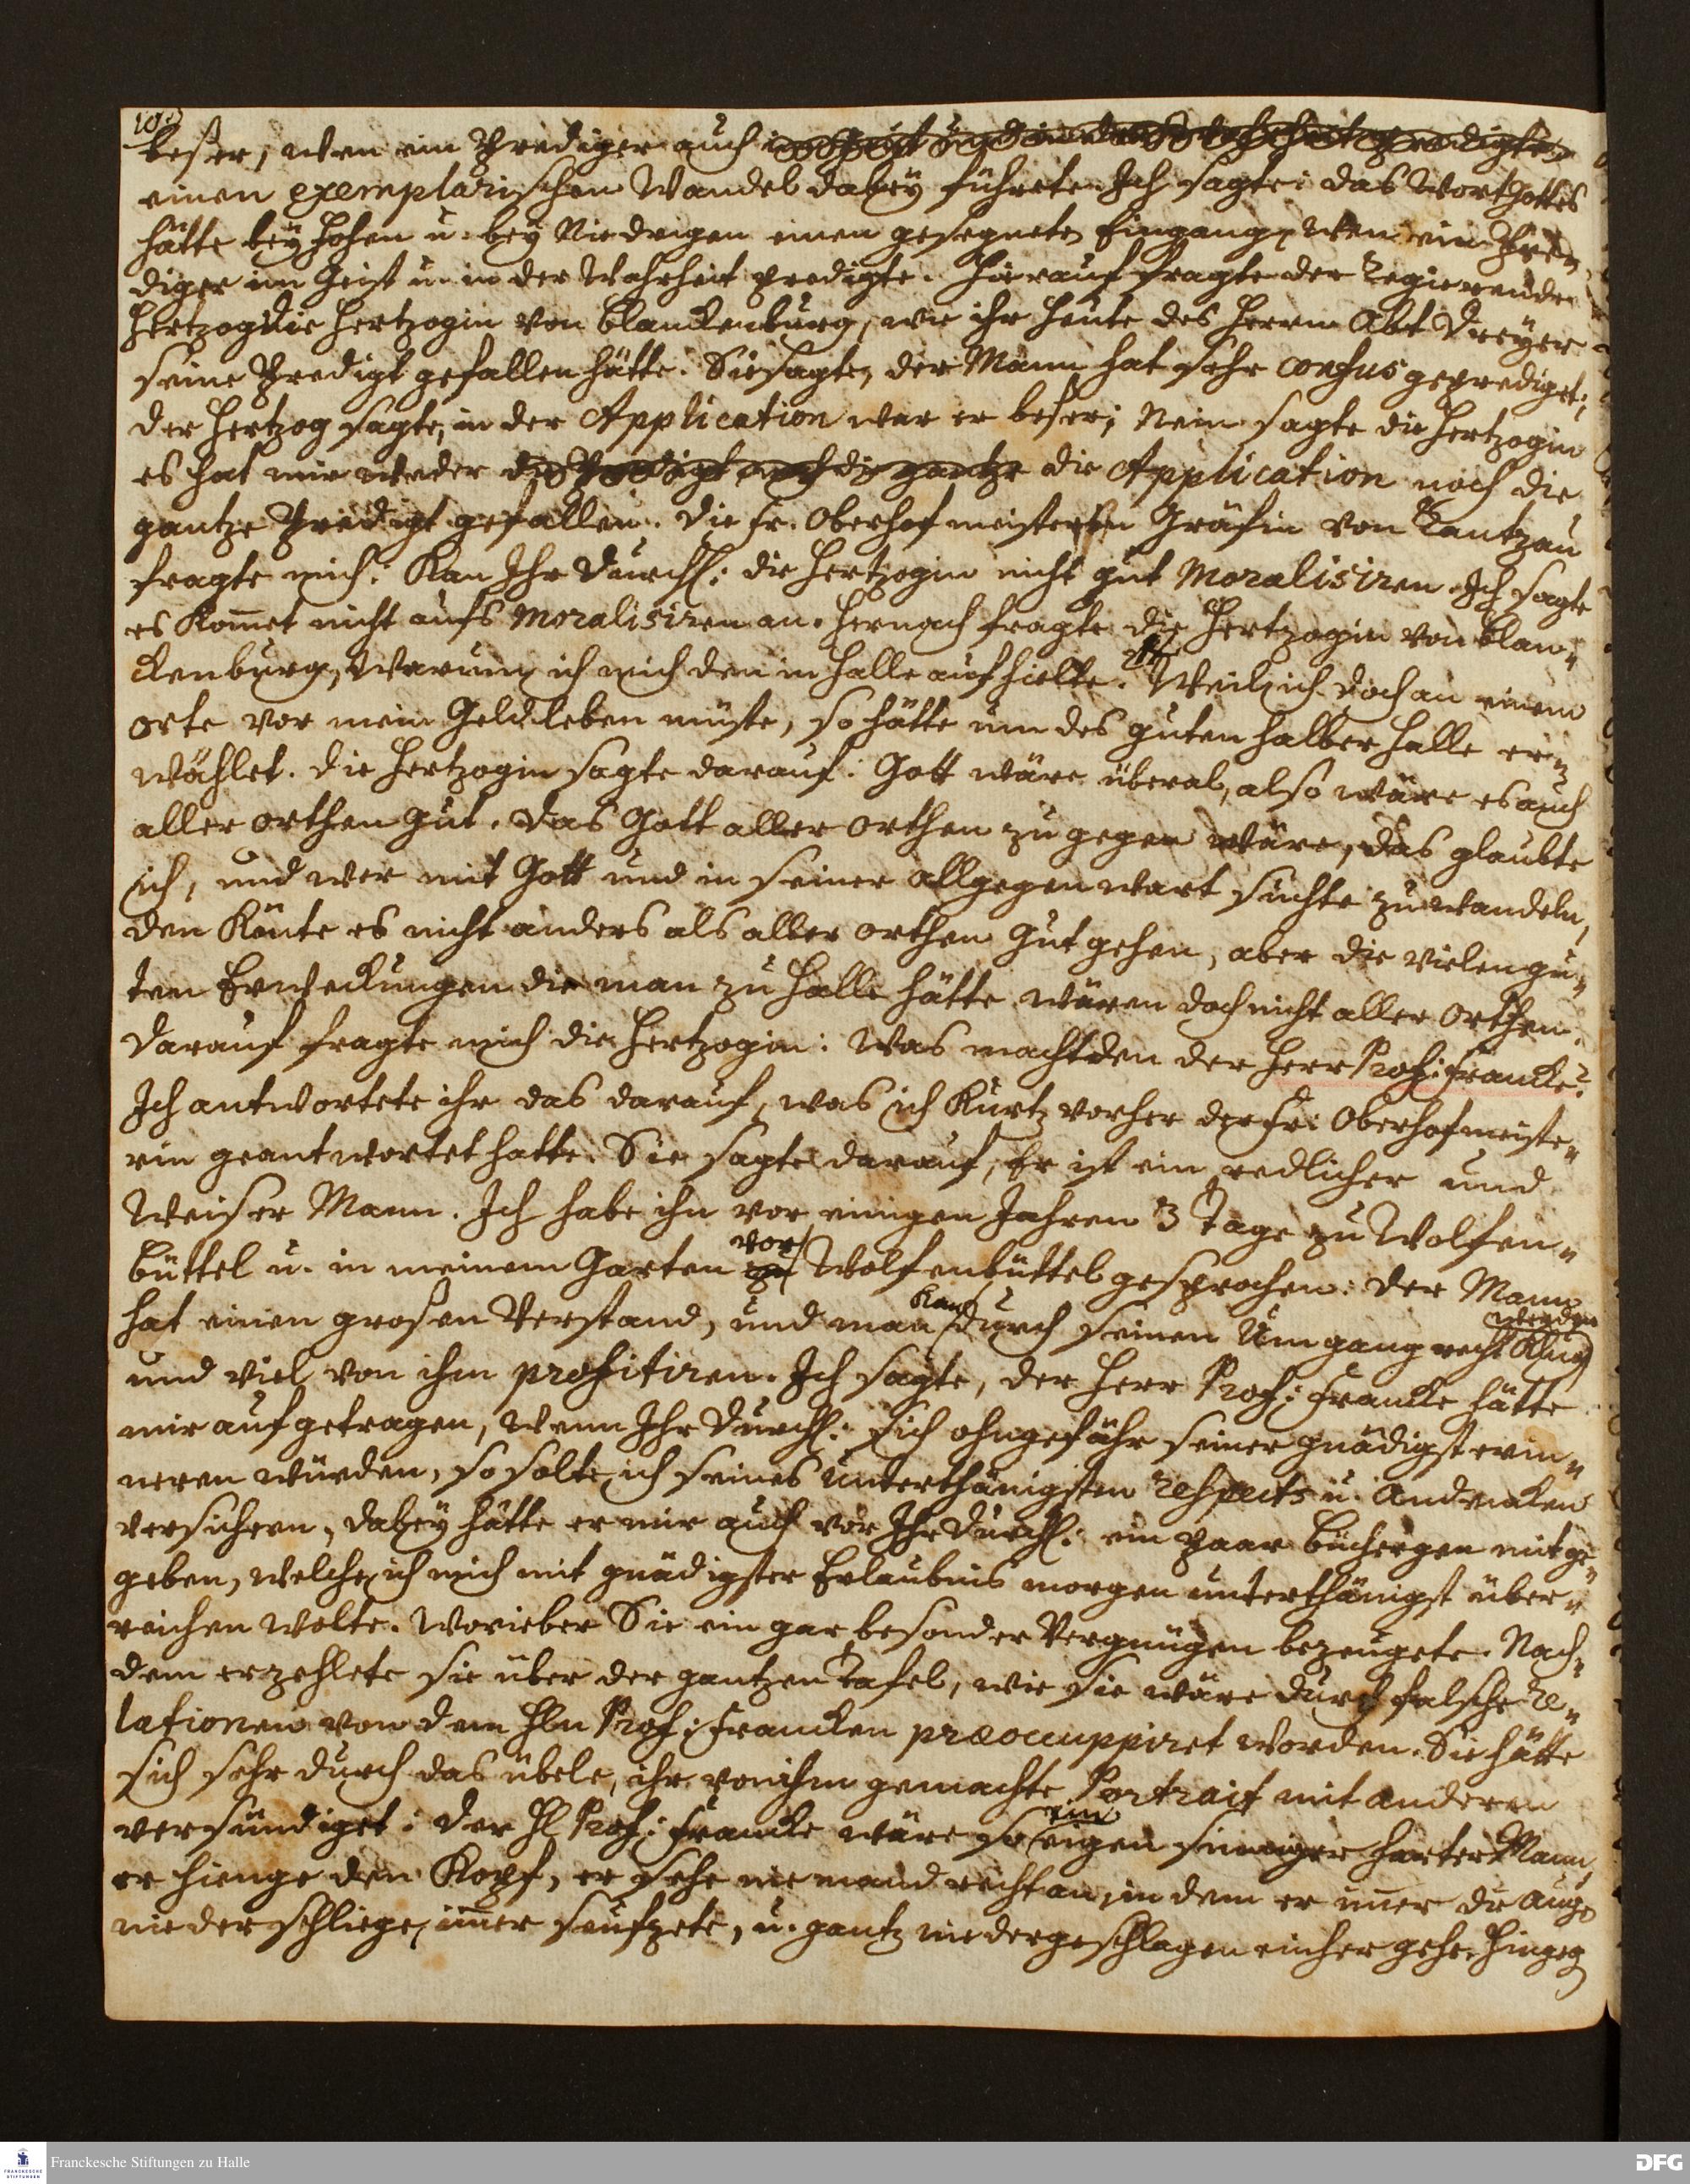 beßer, wen ein Prediger auch im Geist und in der Wahrheit predigte
einen exemplarischen Wandel dabeÿ führete. Ich sagte: das Wort Gottes
hätte beÿ Hohen u. beÿ Niedrigen einen gesegneten Eingang, wen ein Pre„
diger im Geist u. in der Wahrheit predigte. Hierauf fragte der Regierender
Hertzog die Hertzogin von Blanckenburg, wie ihr heute des Herrn Abt Dreÿer
seine Predigt gefallen hätte. Sie sagte, der Mann hat sehr confus geprediget;
der Hertzog sagte, in der Application war er beßer; Nein sagte die Hertzogin
es hat mir weder die Predigt noch die gantze die Application noch die
gantze Predigt gefallen. Die Fr. Oberhofmeisterin Gräfin von Rantzau
fragte mich: Kan Ihr Durchl: die Hertzogin nicht gut Moralisiren. Ich sagte
es kom̄et nicht aufs moralisiren an. Hernach fragte die Hertzogin von Blan„
ckenburg, Warum ich mich den in Halle aufhielte. Weil ich doch an einem
Orte vor mein Geld leben müste, so hätte um des guten halber Halle er„
wählet. Die Hertzogin sagte darauf: Gott wäre überal, also wäre es auch
aller Orthen gut. Das Gott aller Orthen zu gegen wäre, das glaubte
ich, und wer mit Gott und in seiner Allgegenwart suchte zu wandeln,
den Könte es nicht anders als aller Orthen gut gehen, aber die vielen gu„
ten Erweckungen die man zu Halle hätte wären doch nicht aller Orthen.
Darauf fragte mich die Hertzogin: Was macht den der Herr Prof: Francke?
Ich antwortete ihr das darauf, was ich kurtz vorher der Fr: Oberhofmeiste„
rin geantwortet hatte. Sie sagte darauf, Er ist ein redlicher und
Weiser Mann. Ich habe ihn vor einigen Jahren 3 Tage zu Wolfen„
büttel u. in meinem Garten vor Wolfenbüttel gesprochen. Der Mann
hat einen großen Verstand, und man kan durch seinen Umgang recht Klug werden
und viel von ihm profitiren. Ich sagte, der Herr Prof: Francke hätte
mir aufgetragen, wenn Ihr Durchl: sich ohngefähr seiner gnädigst erin„
neren würden, so solte ich seines unterthänigsten respects u. Andencken
versichern, dabeÿ hätte er mir auch vor Ihr Durchl: ein paar Büchergen mitge„
geben, welche ich mich mit gnädigster Erlaubnis morgen unterthänigst über„
reichen wolte. Worieber Sie ein gar besonder Vergnügen bezeugete. Nach„
dem erzehlete sie über der gantzen Tafel, wie sie wäre durch falsche Re„
lationen von dem Hln Prof: Francken præoccuppiret worden. Sie hätte
sich sehr durch das übele, ihr von ihm gemachte Portrait mit anderen
versündiget: Der Hl Prof: Francke wäre so ein eigen sinniger harter Mann,
er hienge den Kopf, er sehe niemand recht an, in dem er im̄er die Auge
niederschliege, im̄er seufzete, u. gantz niedergeschlagen einher gehe. Hingeg
Franckesche Stiftungen zu Halle
FRANCKESCHE STIFTUNGEN
DFG